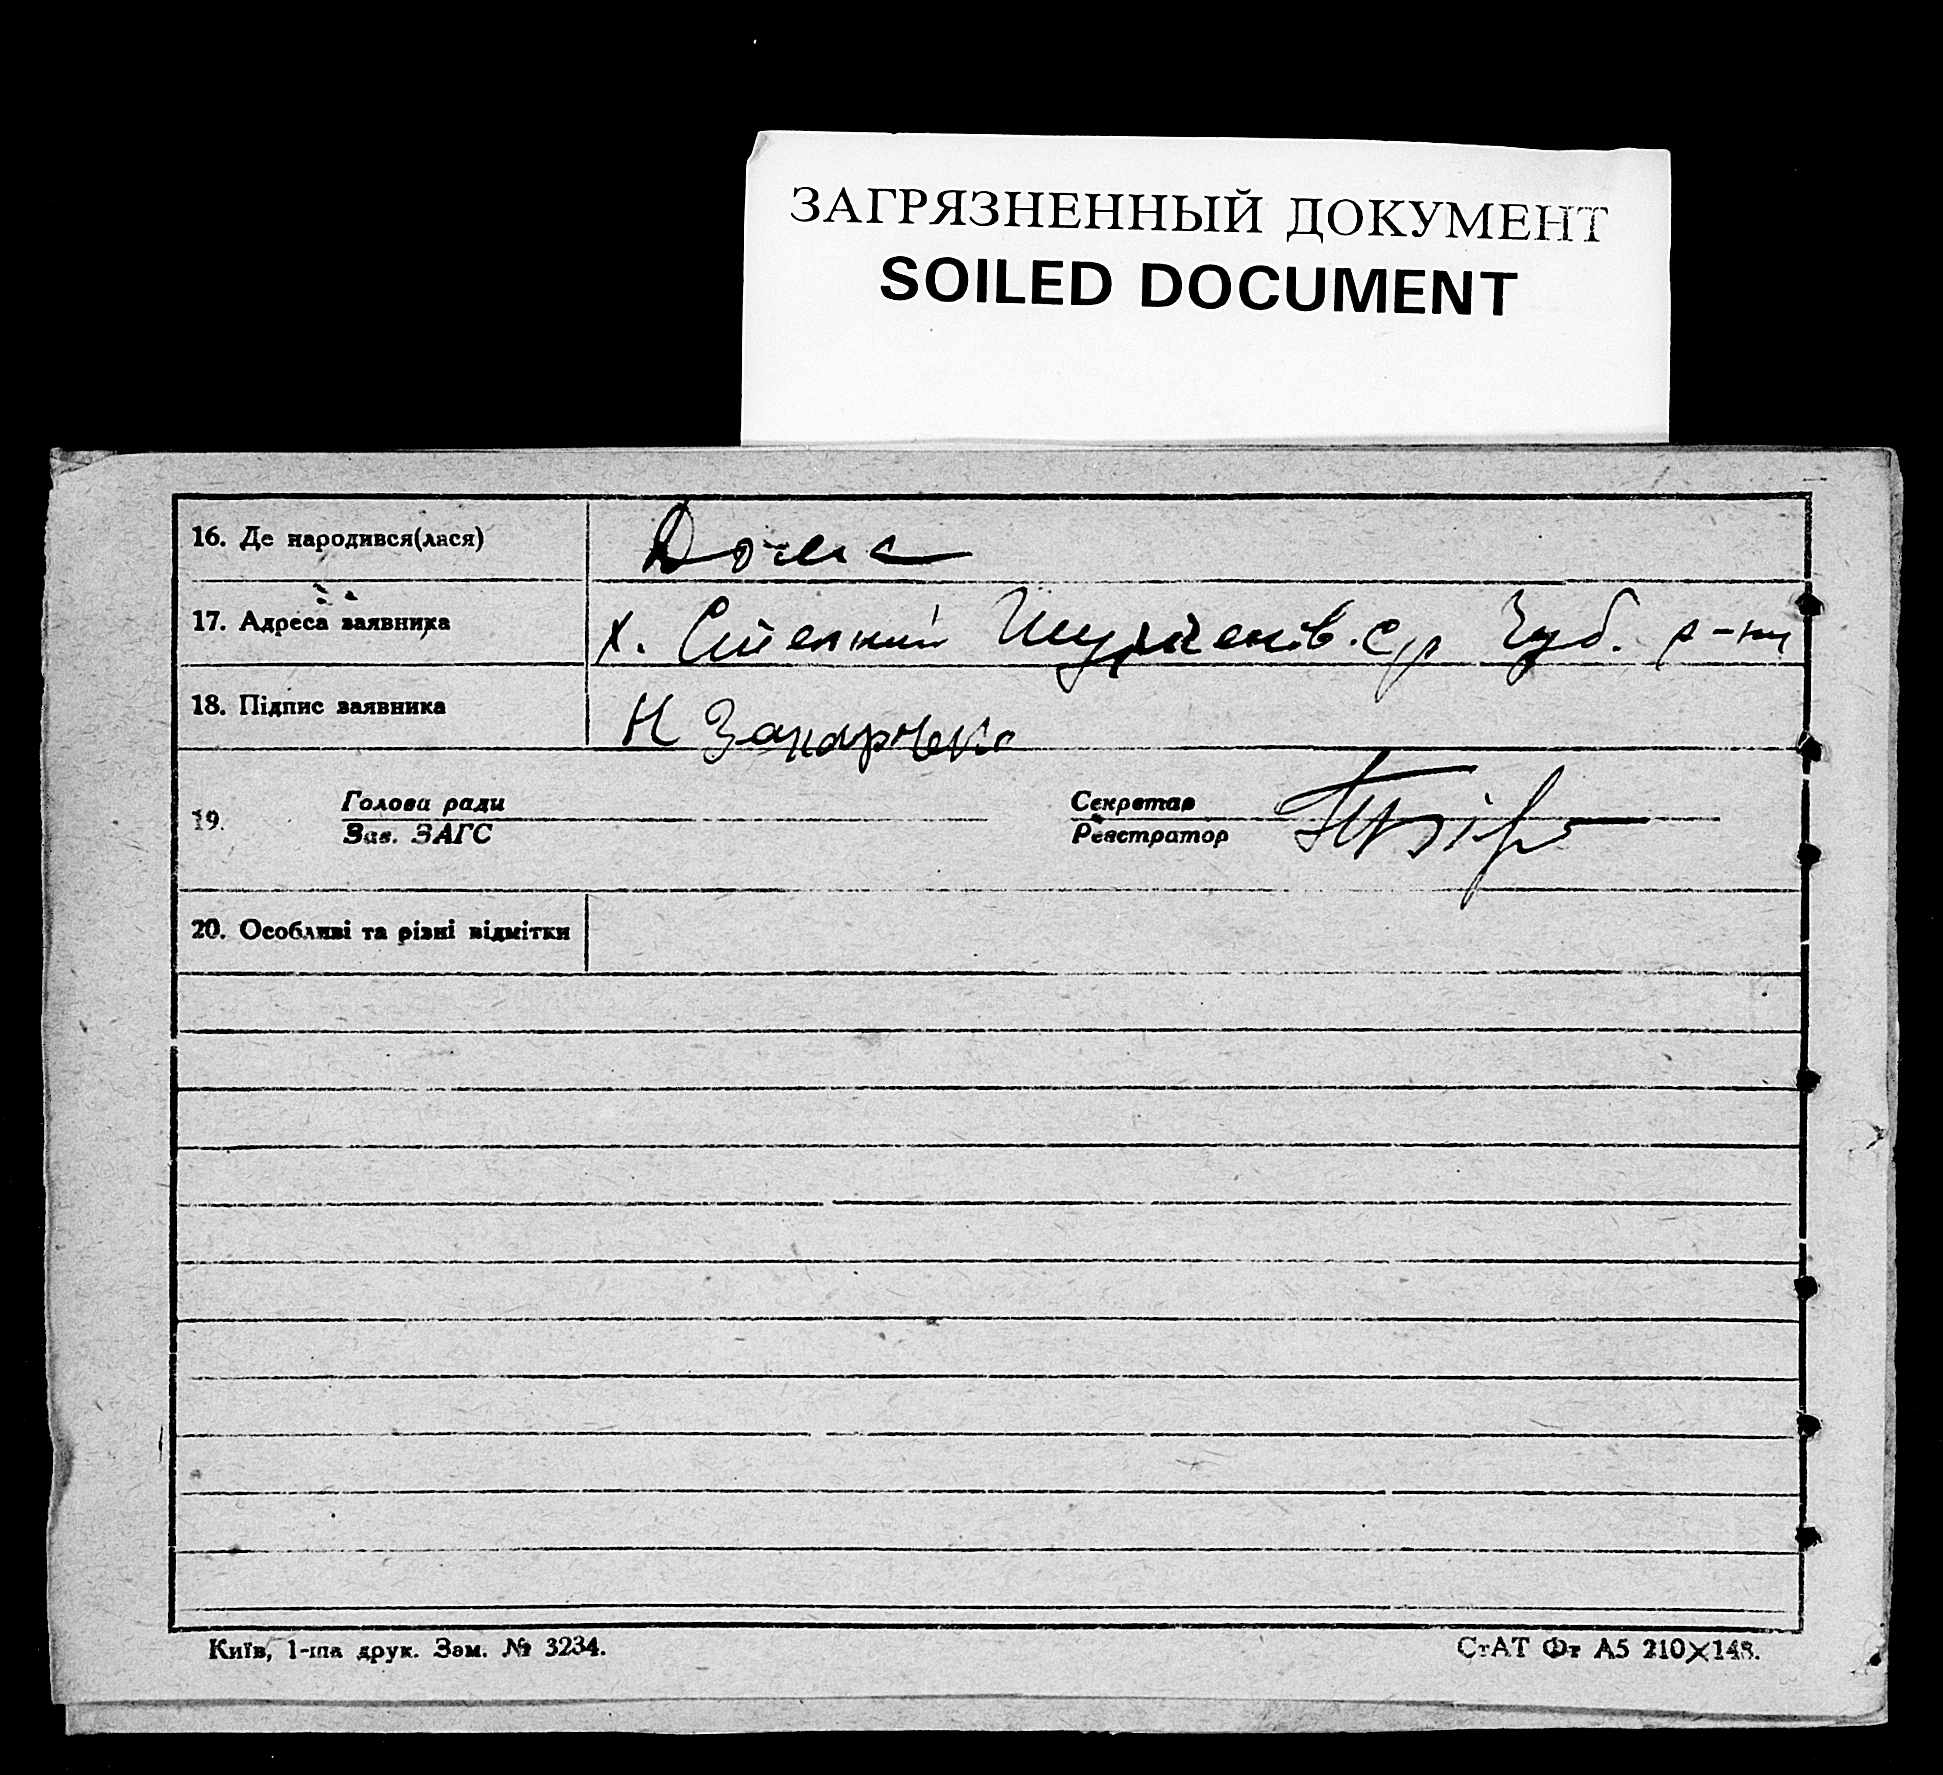 ЗАГРЯЗНЕННЫЙ ДОКУМЕНТ
SOILED DOCUMENT
16. Де народився(лася) Дома
17. Адреса заявника х. Степний с/р р-ну
18. Підпис заявника Н Захарченко
19. Голова ради Секретар
Зав. ЗАГС Реєстратор
20. Особливі та різні відмітки
Київ, 1-ша друк. Зам. № 3234. СтАТ Фт А5 210×148.